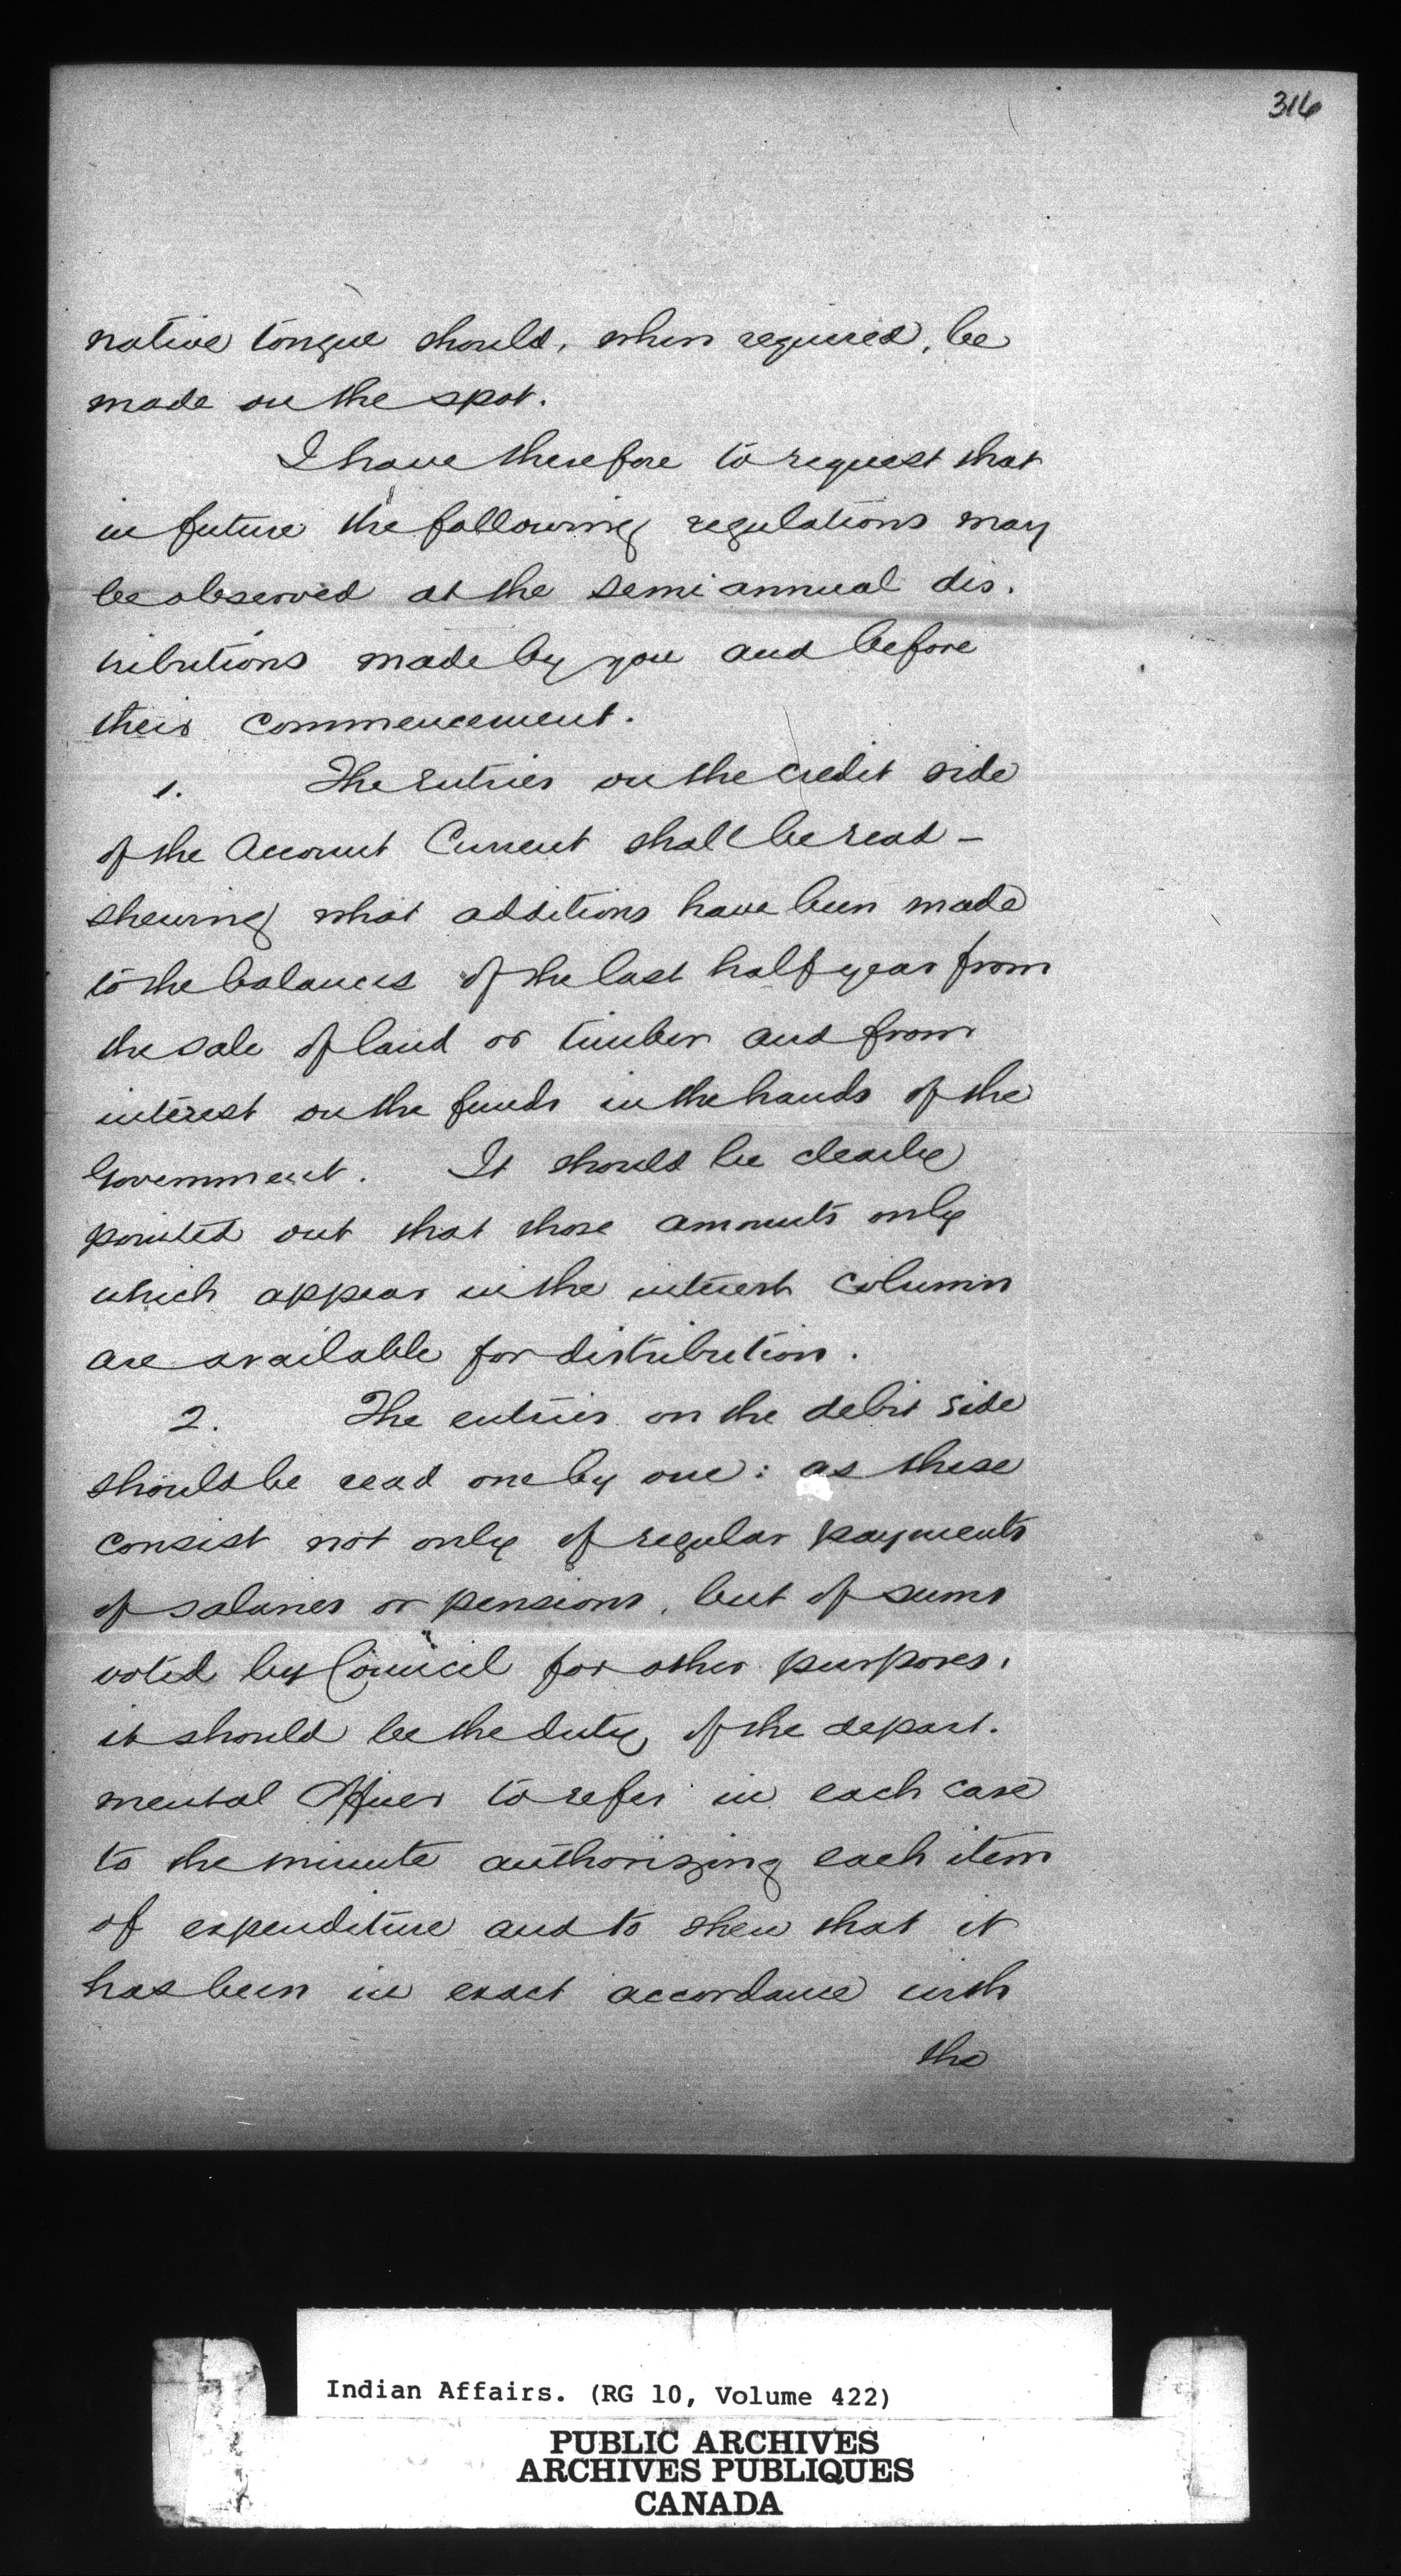 316
native tongue should, when required, be
made on the spot.
I have therefore to request that
in future the following regulations may
be observed at the semi annual dis.
tributions made by you and before
their commencement.
1. The Entries on the credit side
of the Account Current shall be read –
shewing what additions have been made
to the balances of the last half year from
the sale of land or timber and from
interest on the funds in the hands of the
Government. It should be clearly
pointed out that those amounts only
which appear in the interest column
are available for distribution.
2. The entries on the debit side
should be read one by one: as these
consist not only of regular payments
of salaries or pensions, but of sums
voted by Council for other purposes,
it should be the duty of the depart.
mental Officer to refer in each case
to the minute authorizing each item
of expenditure and to shew that it
has been in exact accordance with
the
Indian Affairs. (RG 10, Volume 422)
PUBLIC ARCHIVES
ARCHIVES PUBLIQUES
CANADA